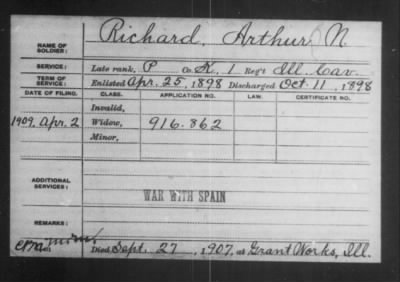 NAME OF SOLDIER: Richard, Arthur N.
SERVICE: Late rank, P Co. K, 1 Reg't Ill. Cav.
TERM OF SERVICE: Enlisted Apr. 25, 1898 Discharged Oct. 11, 1898
DATE OF FILING. CLASS. APPLICATION NO. LAW. CERTIFICATE NO.
Invalid,
1909, Apr. 2 Widow, 916.862
Minor,
ADDITIONAL SERVICES:
WAR WITH SPAIN
REMARKS:
Died Sept. 27, 1907, at Grant Works, Ill.